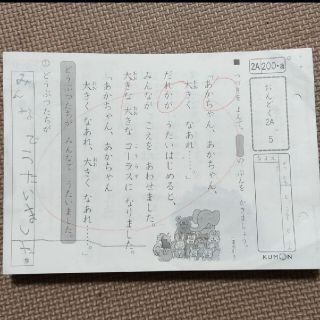 2A200・a
おんどく
2A
5
■ つぎを よんで、 の ぶんを かきましょう。
「あかちゃん、あかちゃん、
大きく なあれ。」
だれかが うたいはじめると、
みんなが こえを あわせました。
大きな 大きな コーラスに なりました。
「あかちゃん、あかちゃん
大きく なあれ、大きく なあれ……。」
どうぶつたちが みんなで うたいました。
① どうぶつたちが
みんなで うたいました
KUMON